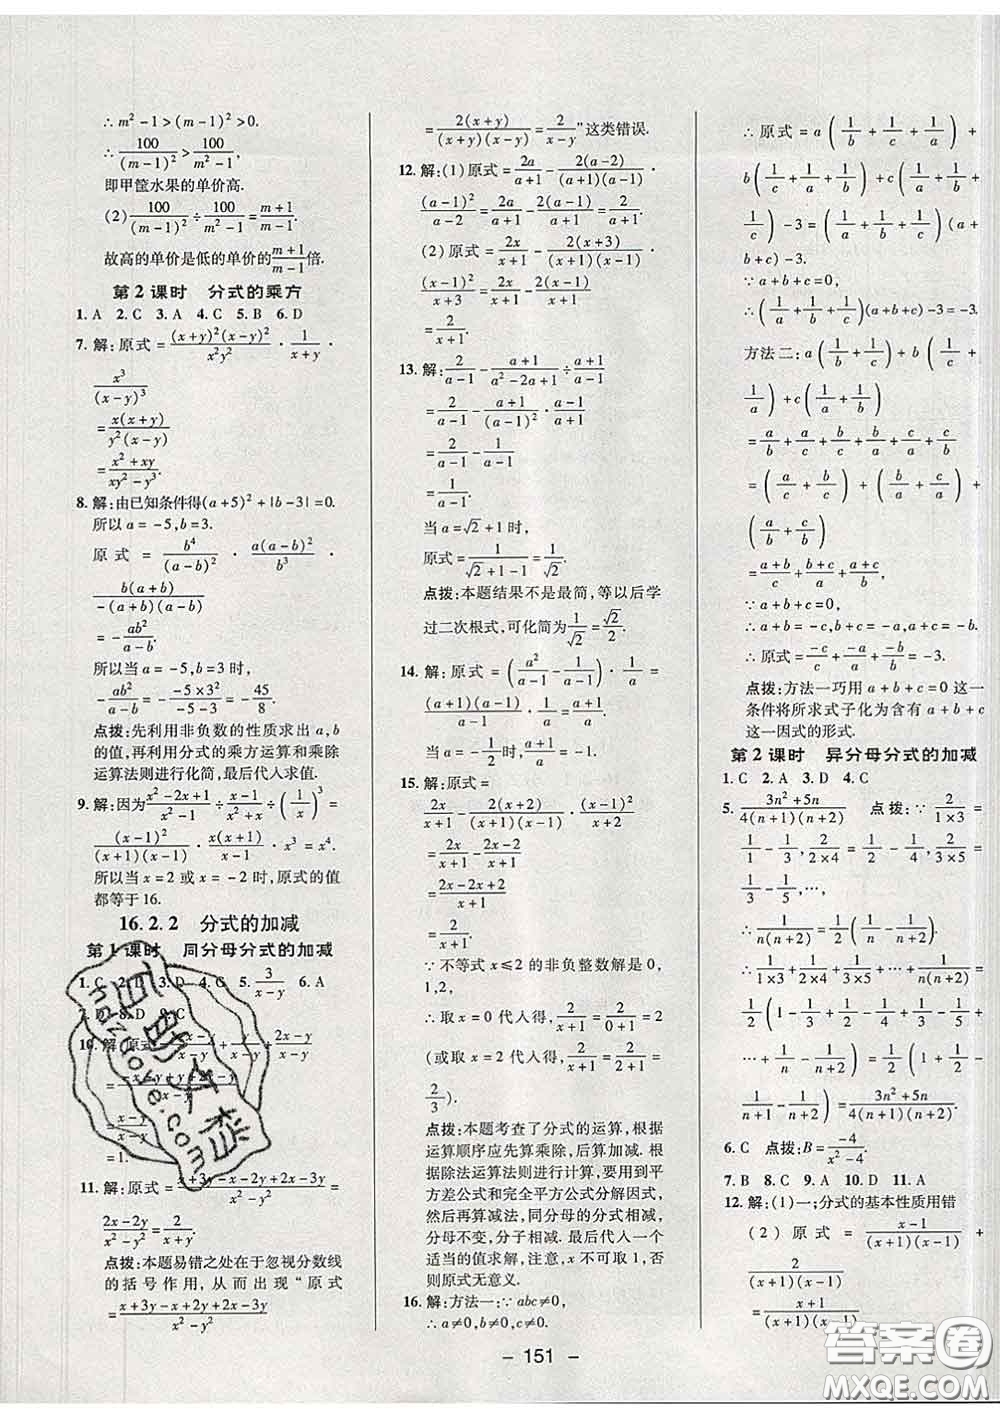 ∴ m²-1>(m-1)²>0.
∴ 100/(m-1)² > 100/(m²-1),
即甲筐水果的单价高.
(2) 100/(m-1)² ÷ 100/(m²-1) = (m+1)/(m-1).
故高的单价是低的单价的(m+1)/(m-1)倍.
第2课时 分式的乘方
1. A 2. C 3. A 4. C 5. B 6. D
7. 解:原式=(x+y)²(x-y)²/x²y² · 1/(x+y) ·
x³/(x-y)³
=x(x+y)/y²(x-y)
=(x²+xy)/(xy²-y³).
8. 解:由已知条件得(a+5)²+|b-3|=0.
所以a=-5,b=3.
原式=b⁴/(a-b)² · a(a-b)²/b³ ·
b(a+b)/-(a+b)(a-b)
=-ab²/(a-b).
所以当a=-5,b=3时,
-ab²/(a-b)=-(-5×3²)/(-5-3)=-45/8.
点拨:先利用非负数的性质求出a,b
的值,再利用分式的乘方运算和乘除
运算法则进行化简,最后代入求值.
9. 解:因为(x²-2x+1)/(x²-1)÷(x-1)/(x²+x)÷(1/x)³=
(x-1)²/(x+1)(x-1) · x(x+1)/(x-1) · x³=x⁴.
所以当x=2或x=-2时,原式的值
都等于16.
16.2.2 分式的加减
第1课时 同分母分式的加减
1. C 2. D 3. D 4. C 5. 3/(x-y) 6. A
7. D 8. D 9. C
10. 解:原式=
=
=
=1.
11. 解:原式=(x+3y-x-2y+2x-3y)/(x²-y²)=
(2x-2y)/(x²-y²)=2/(x+y).
点拨:本题易错之处在于忽视分数线
的括号作用,从而出现“原式
=(x+3y-x+2y+2x-3y)/(x²-y²)
=2(x+y)/(x+y)(x-y)=2/(x-y)”这类错误.
12. 解:(1)原式=2a/(a+1)-2(a-2)/(a+1)(a-1) ·
(a-1)²/(a-2)=2a/(a+1)-2(a-1)/(a+1)=2/(a+1).
(2)原式=2x/(x+1)-2(x+3)/(x+1)(x-1) ·
(x-1)²/(x+3)
=2/(x+1).
13. 解:2/(a-1)-(a+1)/(a²-2a+1)÷(a+1)/(a-1)
=2/(a-1)-(a+1)/(a-1)² · (a-1)/(a+1)
=2/(a-1)-1/(a-1)
=1/(a-1).
当a=√2+1时,
原式=1/(√2+1-1)=1/√2.
点拨:本题结果不是最简,等以后学
过二次根式,可化简为1/√2=√2/2.
14. 解:原式=(a²/(a-1)-1/(a-1)) · 1/a=
(a+1)(a-1)/(a-1) · 1/a=(a+1)/a.
当a=-1时,(a+1)/a=(-1+1)/-1=0.
15. 解:原式=
2x/(x+1)-2(x+2)/(x+1)(x-1) · (x-1)²... 
=2x/(x+1)-(2x-2)/(x+1)
=(2x-2x+2)/(x+1)
=2/(x+1).
∵不等式x≤2的非负整数解是0,
1,2,
∴取x=0代入得,2/(x+1)=2/(0+1)=2
(或取x=2代入得,2/(x+1)=2/(2+1)=
2/3).
点拨:本题考查了分式的运算,根据
运算顺序应先算乘除,后算加减.根
据除法运算法则进行计算,要用到平
方差公式和完全平方公式分解因式,
然后再算减法,同分母的分式相减,
分母不变,分子相减.最后代入一个
适当的值求解,注意,x不可取1,否
则原式无意义.
16. 解:方法一:∵abc≠0,
∴a≠0,b≠0,c≠0.
∴原式=a(1/b+1/c+1/a)+
b(1/a+1/c+1/b)+c(1/a+1/b+
1/c)-3=(1/a+1/b+1/c)(a+
b+c)-3.
∵a+b+c=0,
∴(1/a+1/b+1/c)(a+b+c)-3=-3.
方法二:a(1/b+1/c)+b(1/a+
1/c)+c(1/a+1/b)
=a/b+a/c+b/a+b/c+c/a+c/b
=(a/c+b/c)+(b/a+c/a)+
(a/b+c/b)
=(a+b)/c+(b+c)/a+(a+c)/b,
∵a+b+c=0,
∴a+b=-c,b+c=-a,a+c=-b.
∴原式=-c/c+-a/a+-b/b=-3.
点拨:方法一巧用a+b+c=0这一
条件将所求式子化为含有a+b+c
这一因式的形式.
第2课时 异分母分式的加减
1. C 2. A 3. D 4. C
5. (3n²+5n)/4(n+1)(n+2) 点拨:∵2/(1×3)=
1/1-1/3,2/(2×4)=1/2-1/4,2/(3×5)=
1/3-1/5,…,
∴1/n(n+2)=1/2(1/n-1/(n+2)).
∴1/(1×3)+1/(2×4)+1/(3×5)+…+1/n(n+2)=
1/2(1-1/3+1/2-1/4+1/3-1/5+
…+1/n-1/(n+2))=1/2(1+1/2-
1/(n+1)-1/(n+2))=(3n²+5n)/4(n+1)(n+2).
6. C 点拨:B=-4/(x²-4).
7. B 8. C 9. A 10. D 11. A
12. 解:(1)一;分式的基本性质用错
(2)原式=(x-1)/(x+1)(x-1)+
2/(x+1)(x-1)
=(x+1)/(x+1)(x-1)
- 151 -
答案圈
MXQE.COM